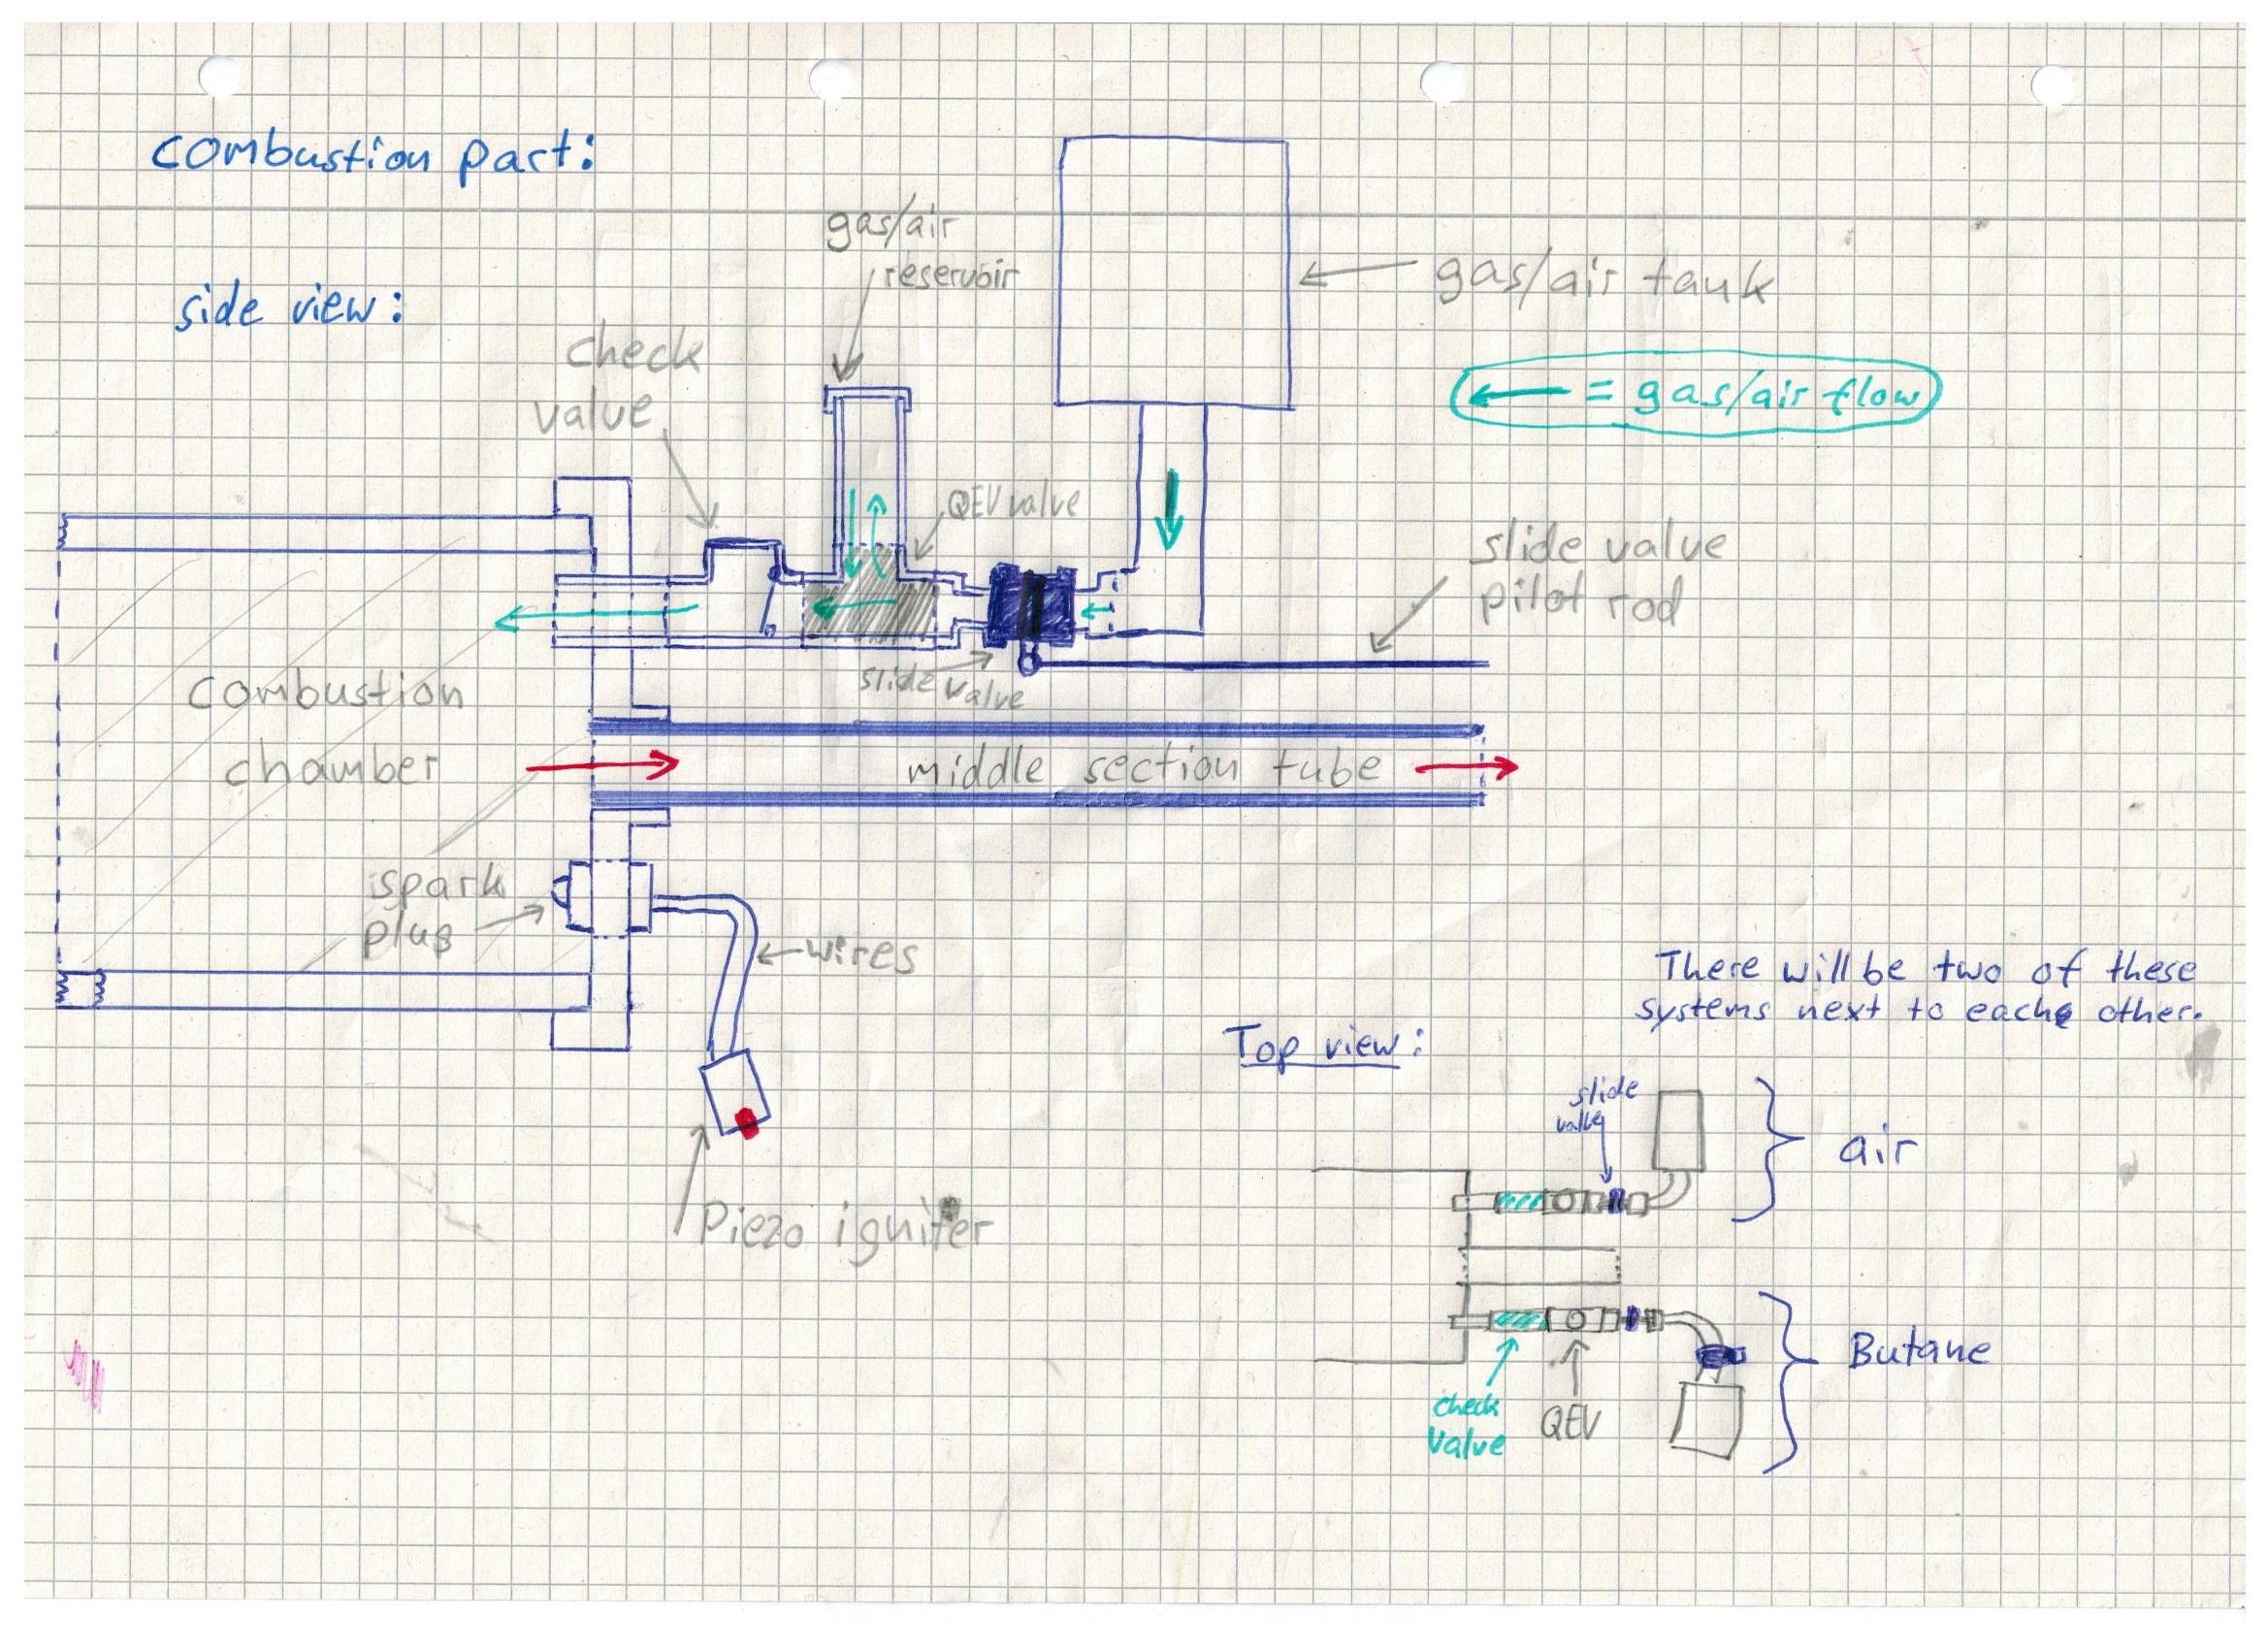 combustion part:
side view:
gas/air
reservoir
gas/air tank
check
valve
← = gas/air flow
QEV valve
slide valve
pilot rod
slide valve
combustion
chamber
middle section tube
spark
plug
wires
Piezo igniter
There will be two of these
systems next to each other.
Top view:
slide
valve
air
Butane
check
Valve
QEV